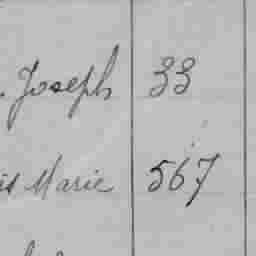 . Joseph 33
is Marie 567